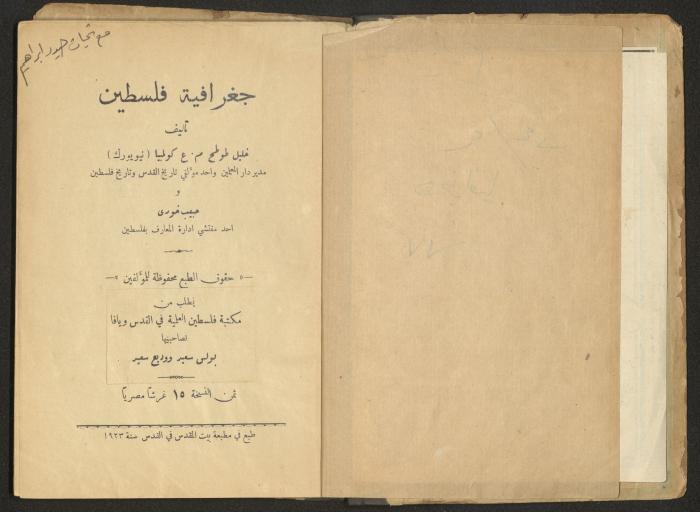 مع تحيات حيدر ابراهيم
جغرافية فلسطين
تأليف
خليل طوطح م٠ع كولمبيا (نيويورك)
مدير دار المعلمين واحد مؤلفي تاريخ القدس وتاريخ فلسطين
و
حبيب خوري
احد مفتشي ادارة المعارف بفلسطين
حقوق الطبع محفوظة للمؤلفين
يطلب من
مكتبة فلسطين العلمية في القدس ويافا
لصاحبيها
بولس سعيد ووديع سعيد
ثمن النسخة ١٥ غرشاً مصرياً
طبع في مطبعة بيت المقدس في القدس سنة ١٩٢٣